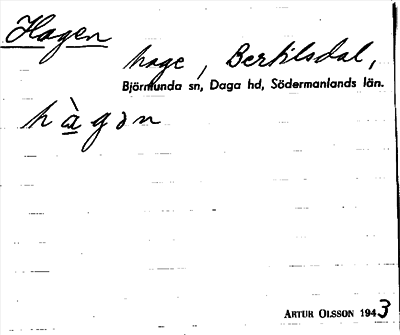 Hagen
hage, Bertilsdal,
Björnlunda sn, Daga hd, Södermanlands län.
hàgən
ARTUR OLSSON 1943